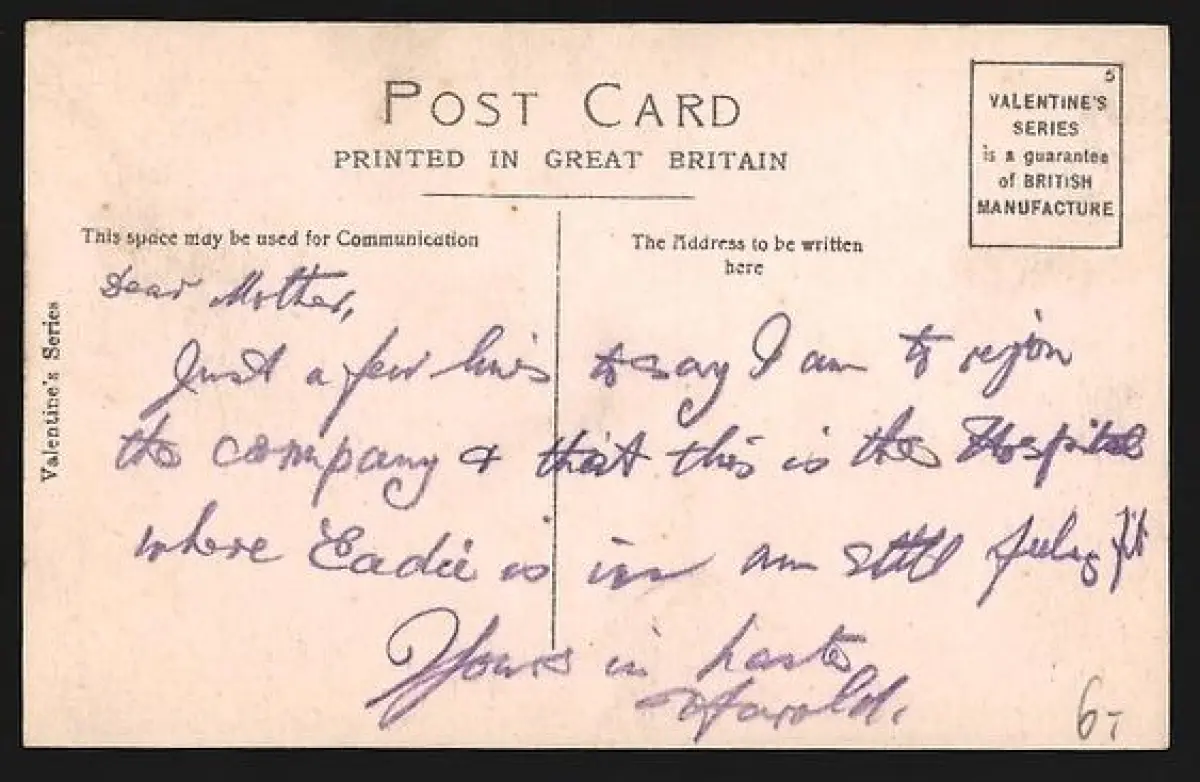 POST CARD
PRINTED IN GREAT BRITAIN
5
VALENTINE'S
SERIES
is a guarantee
of BRITISH
MANUFACTURE
This space may be used for Communication
The Address to be written
here
Valentine's Series
Dear Mother,
Just a few lines to say I am to rejoin
the company & that this is the Hospital
where Eadie is in am still feeling fit
Yours in haste
Harold.
6-